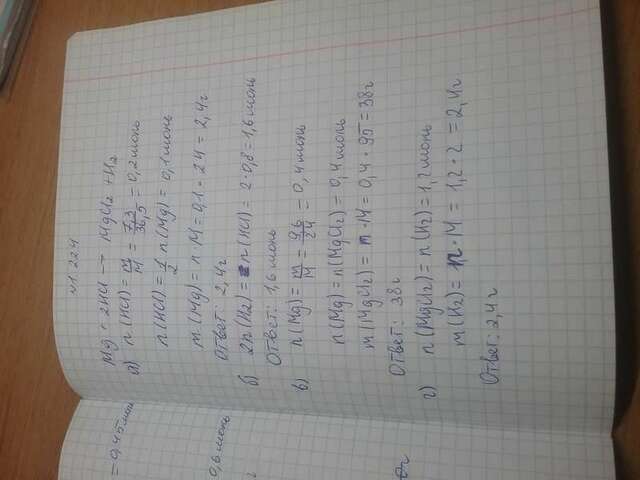 =0,45 моль
0,6 моль
0г
№1.224
Mg + 2HCl → MgCl₂ + H₂
а) n(HCl) = m/M = 7,3/36,5 = 0,2 моль
n(HCl) = 1/2 n(Mg) = 0,1 моль
m(Mg) = n·M = 0,1 · 24 = 2,4г
Ответ: 2,4г
б) 2n(H₂) = n(HCl) = 2·0,8 = 1,6 моль
Ответ: 1,6 моль
в) n(Mg) = m/M = 9,6/24 = 0,4 моль
n(Mg) = n(MgCl₂) = 0,4 моль
m(MgCl₂) = n·M = 0,4·95 = 38г
Ответ: 38г
г) n(MgCl₂) = n(H₂) = 1,2 моль
m(H₂) = n·M = 1,2·2 = 2,4г
Ответ: 2,4г